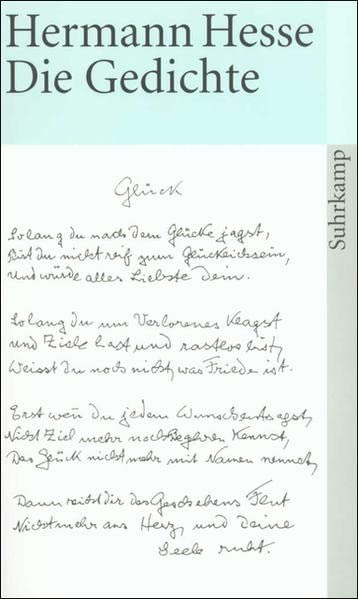 Hermann Hesse
Die Gedichte
Suhrkamp
Glück
Solang du nach dem Glücke jagst,
Bist du nicht reif zum Glücklichsein,
Und würde alles Liebste Dein.
Solang du um Verlorenes klagst
und Ziele hast und rastlos bist,
Weisst du noch nicht, was Friede ist.
Erst wenn du jedem Wunsch entsagst,
Nicht Ziel mehr noch Begehren kennst,
Das Glück nicht mehr mit Namen nennst,
Dann reicht dir des Geschehens Flut
Nicht mehr ans Herz, und deine
Seele ruht.